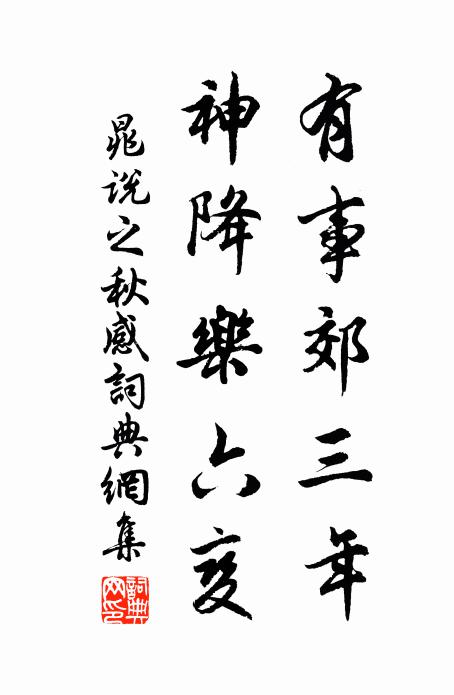 有事郊三年
神降樂六変
晁說之秋感詞典網集
詞典網印